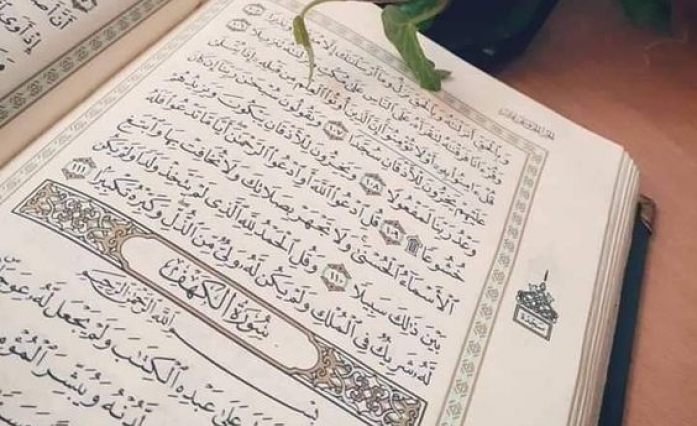 وَبِٱلْحَقِّ أَنزَلْنَٰهُ وَبِٱلْحَقِّ نَزَلَ وَمَآ أَرْسَلْنَٰكَ إِلَّا
وَقُرْءَانًا فَرَقْنَٰهُ لِتَقْرَأَهُۥ عَلَى ٱلنَّاسِ عَلَىٰ مُكْثٍ وَنَزَّلْنَٰهُ تَنزِيلًا ١٠٦
قُلْ ءَامِنُوا۟ بِهِۦٓ أَوْ لَا تُؤْمِنُوٓا۟ إِنَّ ٱلَّذِينَ أُوتُوا۟ ٱلْعِلْمَ مِن قَبْلِهِۦٓ إِذَا يُتْلَىٰ
عَلَيْهِمْ يَخِرُّونَ لِلْأَذْقَانِ سُجَّدًا ١٠٧ وَيَقُولُونَ سُبْحَٰنَ رَبِّنَآ إِن كَانَ
وَعْدُ رَبِّنَا لَمَفْعُولًا ١٠٨ وَيَخِرُّونَ لِلْأَذْقَانِ يَبْكُونَ وَيَزِيدُهُمْ
خُشُوعًا ۩ ١٠٩ قُلِ ٱدْعُوا۟ ٱللَّهَ أَوِ ٱدْعُوا۟ ٱلرَّحْمَٰنَ أَيًّا مَّا تَدْعُوا۟ فَلَهُ
ٱلْأَسْمَآءُ ٱلْحُسْنَىٰ وَلَا تَجْهَرْ بِصَلَاتِكَ وَلَا تُخَافِتْ بِهَا وَٱبْتَغِ
بَيْنَ ذَٰلِكَ سَبِيلًا ١١٠ وَقُلِ ٱلْحَمْدُ لِلَّهِ ٱلَّذِى لَمْ يَتَّخِذْ وَلَدًا وَلَمْ يَكُن
لَّهُۥ شَرِيكٌ فِى ٱلْمُلْكِ وَلَمْ يَكُن لَّهُۥ وَلِىٌّ مِّنَ ٱلذُّلِّ وَكَبِّرْهُ تَكْبِيرًۢا ١١١
سُورَةُ الكَهْفِ
بِسْمِ ٱللَّهِ ٱلرَّحْمَٰنِ ٱلرَّحِيمِ
عَلَىٰ عَبْدِهِ ٱلْكِتَٰبَ وَلَمْ يَجْعَل لَّهُۥ عِوَجَا
لَّدُنْهُ وَيُبَشِّرَ
سجدة